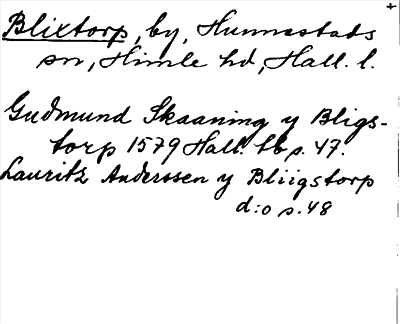 Blixtorp, by, Hunnestads
sn, Himle hd, Hall. l.
Gudmund Skaaning y Bligs-
torp 1579 Hall. tb s. 47.
Lauritz Anderssen y Bliigstorp
d:o s. 48